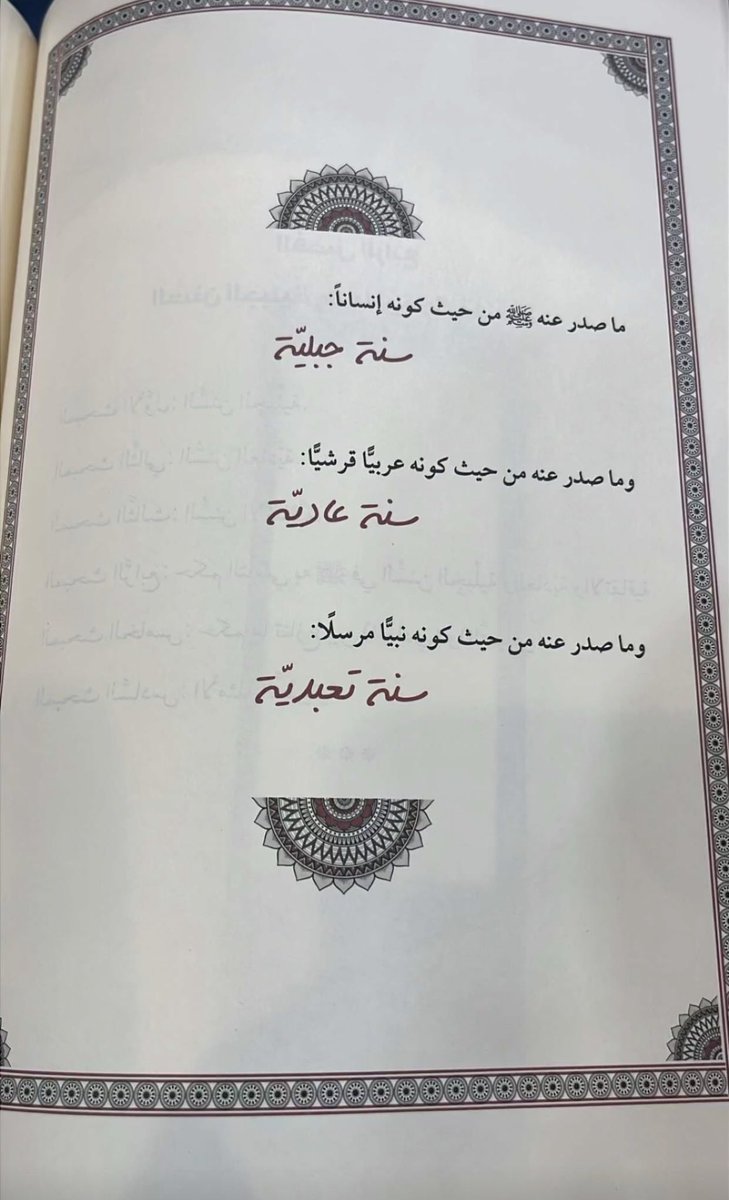 ما صدر عنه ﷺ من حيث كونه إنساناً:
سنة جبليّة
وما صدر عنه من حيث كونه عربيًّا قرشيًّا:
سنة عاديّة
وما صدر عنه من حيث كونه نبيًّا مرسلًا:
سنة تعبديّة